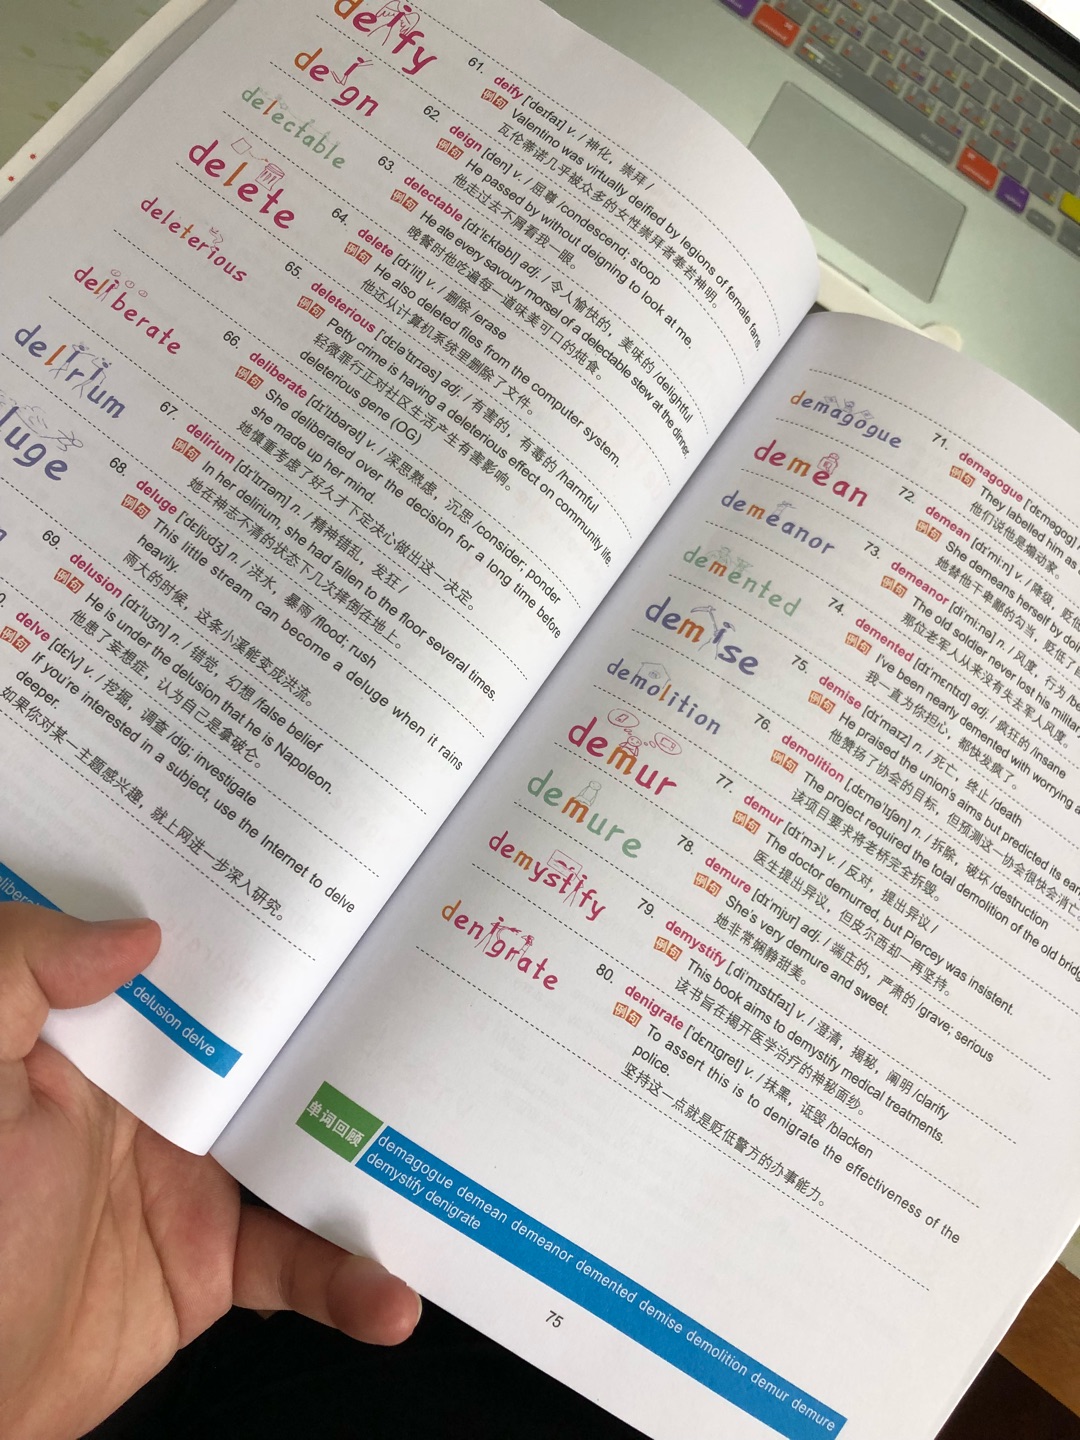 deify
61. deify ['deɪfaɪ] v. / 神化，崇拜 /
例句 Valentino was virtually deified by legions of female fans
瓦伦蒂诺几乎被众多的女性崇拜者奉若神明。
deign
62. deign [den] v. / 屈尊 /condescend; stoop
例句 He passed by without deigning to look at me.
他走过去不屑看我一眼。
delectable
63. delectable [dɪ'lɛktəbl] adj. / 令人愉快的，美味的 /delightful
例句 He ate every savoury morsel of a delectable stew at the dinner
晚餐时他吃遍每一道味美可口的炖食。
delete
64. delete [dɪ'lit] v. / 删除 /erase
例句 He also deleted files from the computer system.
他还从计算机系统里删除了文件。
deleterious
65. deleterious [ˌdɛlə'tɪrɪəs] adj. / 有害的，有毒的 /harmful
例句 Petty crime is having a deleterious effect on community life.
轻微罪行正对社区生活产生有害影响。
deleterious gene (OG)
deliberate
66. deliberate [dɪ'lɪbərət] v. / 深思熟虑，沉思 /consider; ponder
例句 She deliberated over the decision for a long time before
she made up her mind.
她慎重考虑了好久才下定决心做出这一决定。
delirium
67. delirium [dɪ'lɪrɪəm] n. / 精神错乱，发狂 /
例句 In her delirium, she had fallen to the floor several times.
她在神志不清的状态下几次摔倒在地上。
luge
68. deluge ['dɛljudʒ] n. / 洪水，暴雨 /flood; rush
例句 This little stream can become a deluge when it rains
heavily.
雨大的时候，这条小溪能变成洪流。
69. delusion [dɪ'luʒn] n. / 错觉，幻想 /false belief
例句 He is under the delusion that he is Napoleon.
他患了妄想症，认为自己是拿破仑。
0. delve [dɛlv] v. / 挖掘，调查 /dig; investigate
例句 If you're interested in a subject, use the Internet to delve
deeper.
如果你对某一主题感兴趣，就上网进一步深入研究。
delusion delve
demagogue
71. demagogue ['dɛməgɒg]
例句 They labelled him as
他们说他是煽动家。
demean
72. demean [dɪ'miːn] v. / 降级，贬低
例句 She demeans herself by doing
她替他干卑鄙的勾当，贬低了
demeanor
73. demeanor [dɪ'miːnə] n. / 风度，行为
例句 The old soldier never lost his military
那位老军人从来没有失去军人风度。
demented
74. demented [dɪ'mɛntɪd] adj. / 疯狂的 /insane
例句 I've been nearly demented with worrying
我一直为你担心，都快发疯了。
demise
75. demise [dɪ'maɪz] n. / 死亡，终止 /death
例句 He praised the union's aims but predicted its
他赞扬了协会的目标，但预测这一协会很快会消亡
demolition
76. demolition [ˌdɛmə'lɪʃən] n. / 拆除，破坏 /destruction
例句 The project required the total demolition of the old bridge
该项目要求将老桥完全拆毁。
demur
77. demur [dɪ'mɝ] v. / 反对，提出异议 /
例句 The doctor demurred, but Piercey was insistent.
医生提出异议，但皮尔西却一再坚持。
demure
78. demure [dɪ'mjʊr] adj. / 端庄的，严肃的 /grave; serious
例句 She's very demure and sweet.
她非常娴静甜美。
demystify
79. demystify [ˌdi'mɪstɪfaɪ] v. / 澄清，揭秘，阐明 /clarify
例句 This book aims to demystify medical treatments.
该书旨在揭开医学治疗的神秘面纱。
denigrate
80. denigrate ['dɛnɪgret] v. / 抹黑，诋毁 /blacken
例句 To assert this is to denigrate the effectiveness of the
police.
坚持这一点就是贬低警方的办事能力。
单词回顾
demagogue demean demeanor demented demise demolition demur demure
demystify denigrate
75